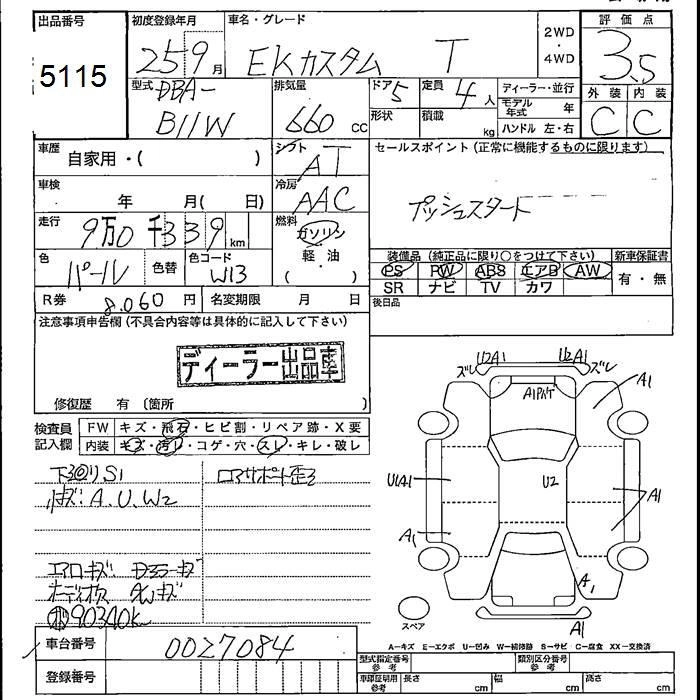 出品番号 5115
初度登録年月 25 9月
車名・グレード EKカスタム T
2WD・4WD
評価点 3.5
外装 C 内装 C
型式 DBA-B11W
排気量 660 cc
ドア 5
形状
定員 4人
積載 kg
ディーラー・並行
モデル年式 年
ハンドル 左・右
車歴 自家用・( )
シフト AT
セールスポイント(正常に機能するものに限ります)
プッシュスタート
車検 年 月( 日)
冷房 AAC
走行 9万0千339km
燃料 ガソリン・軽油 ( )
色 パール 色替
色コード W13
装備品(純正品に限り○をつけて下さい) 新車保証書
PS PW ABS エアB AW 有・無
SR ナビ TV カワ
R券 8,060円 名変期限 月 日
後日品
注意事項申告欄(不具合内容等は具体的に記入して下さい)
ディーラー出品車
修復歴 有(箇所 )
検査員記入欄
FW キズ・飛石・ヒビ割・リペア跡・X要
内装 キズ・汚レ・コゲ・穴・スレ・キレ・破レ
下回りS1
コアサポート歪ミ
キズ:A.U.W2
エアロキズ
AWキズ
90340k
ズレ U2A1 U2A1 ズレ
A1
U1A1 U2 A1
A1
A1
A1
スペア
A=キズ E=エクボ U=凹み W=補修跡 S=サビ C=腐食 XX=交換済
車台番号 0027084
登録番号
型式指定番号 参考 類別区分番号 参考
車庫証明用 参考 長さ cm 幅 cm 高さ cm